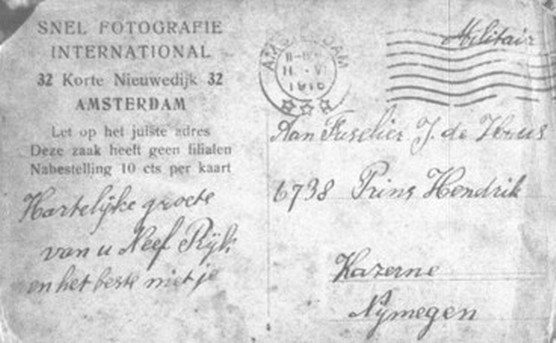 SNEL FOTOGRAFIE
INTERNATIONAL
32 Korte Nieuwedijk 32
AMSTERDAM
Let op het juiste adres
Deze zaak heeft geen filialen
Nabestelling 10 cts per kaart
Hartelijke groete
van u Neef Rijk
en het beste met je
AMSTERDAM
1916
Militair
Aan Fuselier J. de Heus
6738 Prins Hendrik
Kazerne
Nymegen